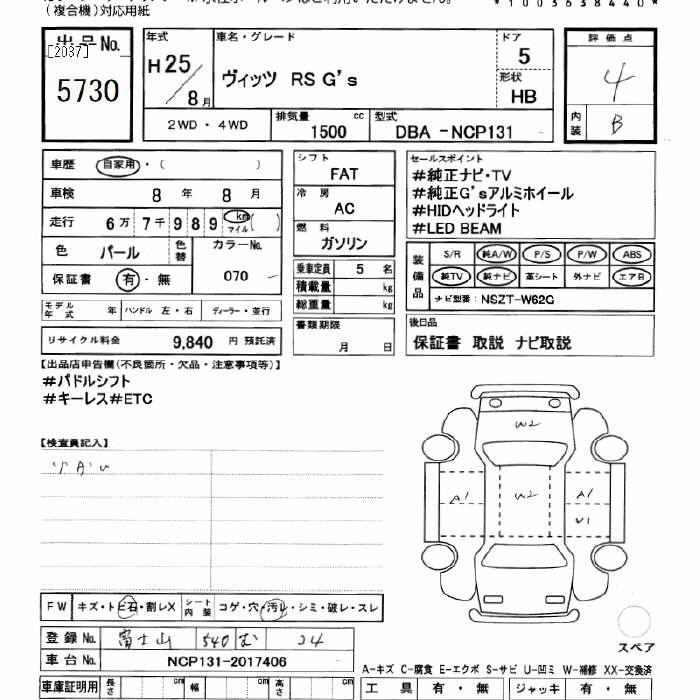 (複合機)対応用紙
*1003638440*
出品No.
[2037]
5730
年式
H25/8月
車名・グレード
ヴィッツ RS G's
ドア
5
形状
HB
評価点
4
内装
B
2WD・4WD
排気量
1500 cc
型式
DBA-NCP131
車歴 自家用・( )
車検 8年 8月
走行 6万7千989 km マイル ( )
色 パール
色替
カラーNo.
070
保証書 有・無
モデル年式 年 ハンドル 左・右 ディーラー・並行
リサイクル料金 9,840 円 預託済
シフト
FAT
冷房
AC
燃料
ガソリン
乗車定員 5 名
積載量 kg
総重量 kg
書類期限
月 日
セールスポイント
#純正ナビ・TV
#純正G'sアルミホイール
#HIDヘッドライト
#LED BEAM
装備品
S/R 純A/W P/S P/W ABS
純TV 純ナビ 革シート 外ナビ エアB
ナビ型番: NSZT-W62G
後日品
保証書 取説 ナビ取説
【出品店申告欄(不良箇所・欠品・注意事項等)】
#パドルシフト
#キーレス#ETC
【検査員記入】
W2
A1
W2
A1
W1
FW キズ・トビ石・割レX
シート内装 コゲ・穴・汚レ・シミ・破レ・スレ
登録No. 富士山 540 む 24
車台No. NCP131-2017406
スペア
A-キズ C-腐食 E-エクボ S-サビ U-凹ミ W-補修 XX-交換済
車庫証明用 長さ cm 幅 cm 高さ cm
工具 有・無 ジャッキ 有・無